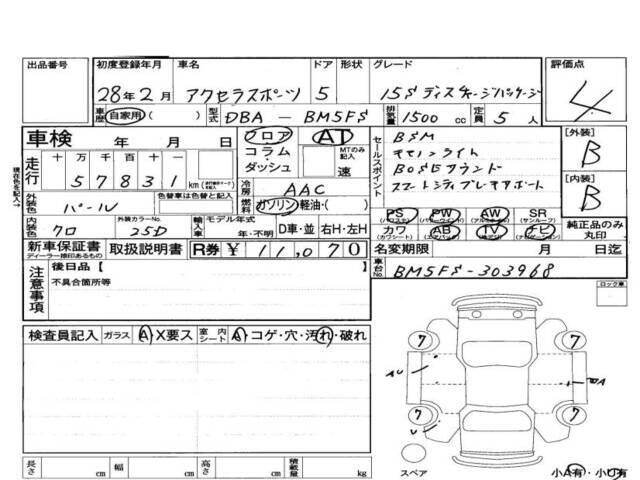 出品番号 初度登録年月 車名 ドア 形状 グレード 評価点
28年2月 アクセラスポーツ 5 15S ディスチャージパッケージ 4
車歴 自家用( ) 型式 DBA - BM5FS 排気量 1500 cc 定員 5 人
車検 年 月 日 フロア AT セールスポイント BSM [外装] B
コラム・ダッシュ MTのみ記入 速
現在色を記入→
走行 十 万 千 百 十 一
5 7 8 3 1 km
BOSEサウンド
スマートシティブレーキサポート [内装] B
外装色 色替車は色替と記入 パール
冷房 AAC
燃料 ガソリン・軽油・( )
PS PW AW SR
(パワステ) (パワーウィンド) (アルミ) (サンルーフ)
カワ AB TV ナビ 純正品のみ丸印
(カワシート) (エアバック)
内装色 クロ 外装カラーNo. 25D 輸入車 モデル年式 年・不明 D車・並 右H・左H
新車保証書 取扱説明書 R券 ¥ 11,070 名変期限 月 日迄
ディーラー捺印あるもの
車台No. BM5FS-303968
注意事項 後日品【 】
不具合箇所等
ロック車
検査員記入 ガラス A・X要ス 室内シート A・コゲ・穴・汚れ・破れ
7 7
AU
7 7
U
長さ cm 幅 cm 高さ cm 積載量 kg
スペア 小A有・小U有